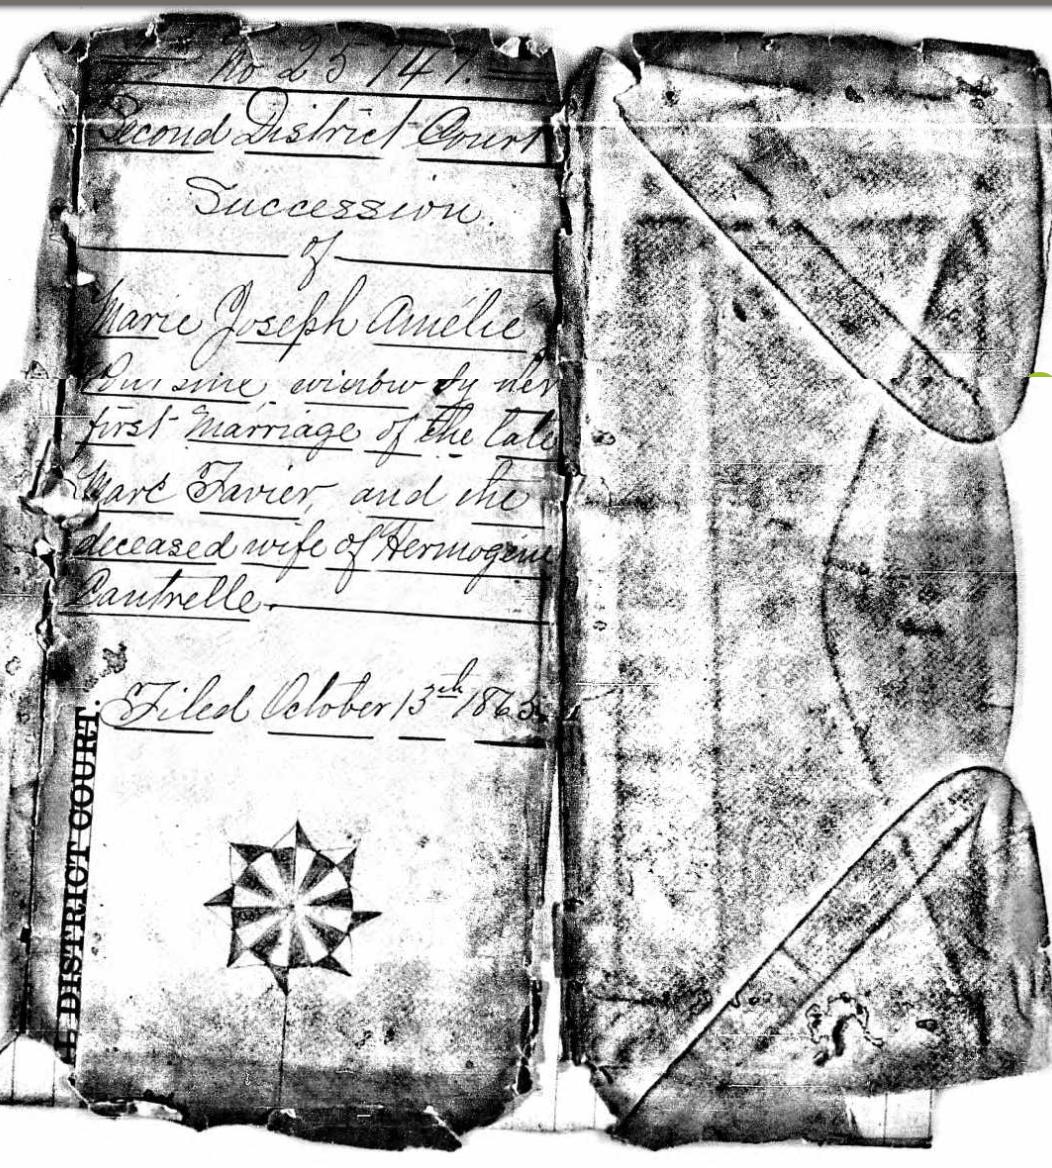 No 25747.
Second District Court
Succession.
of
Marie Joseph Amélie
widow by her
first Marriage of the late
Marc Favier, and the
deceased wife of Hermogene
Cantrelle.
Filed October 13th 1865.
DISTRICT COURT.